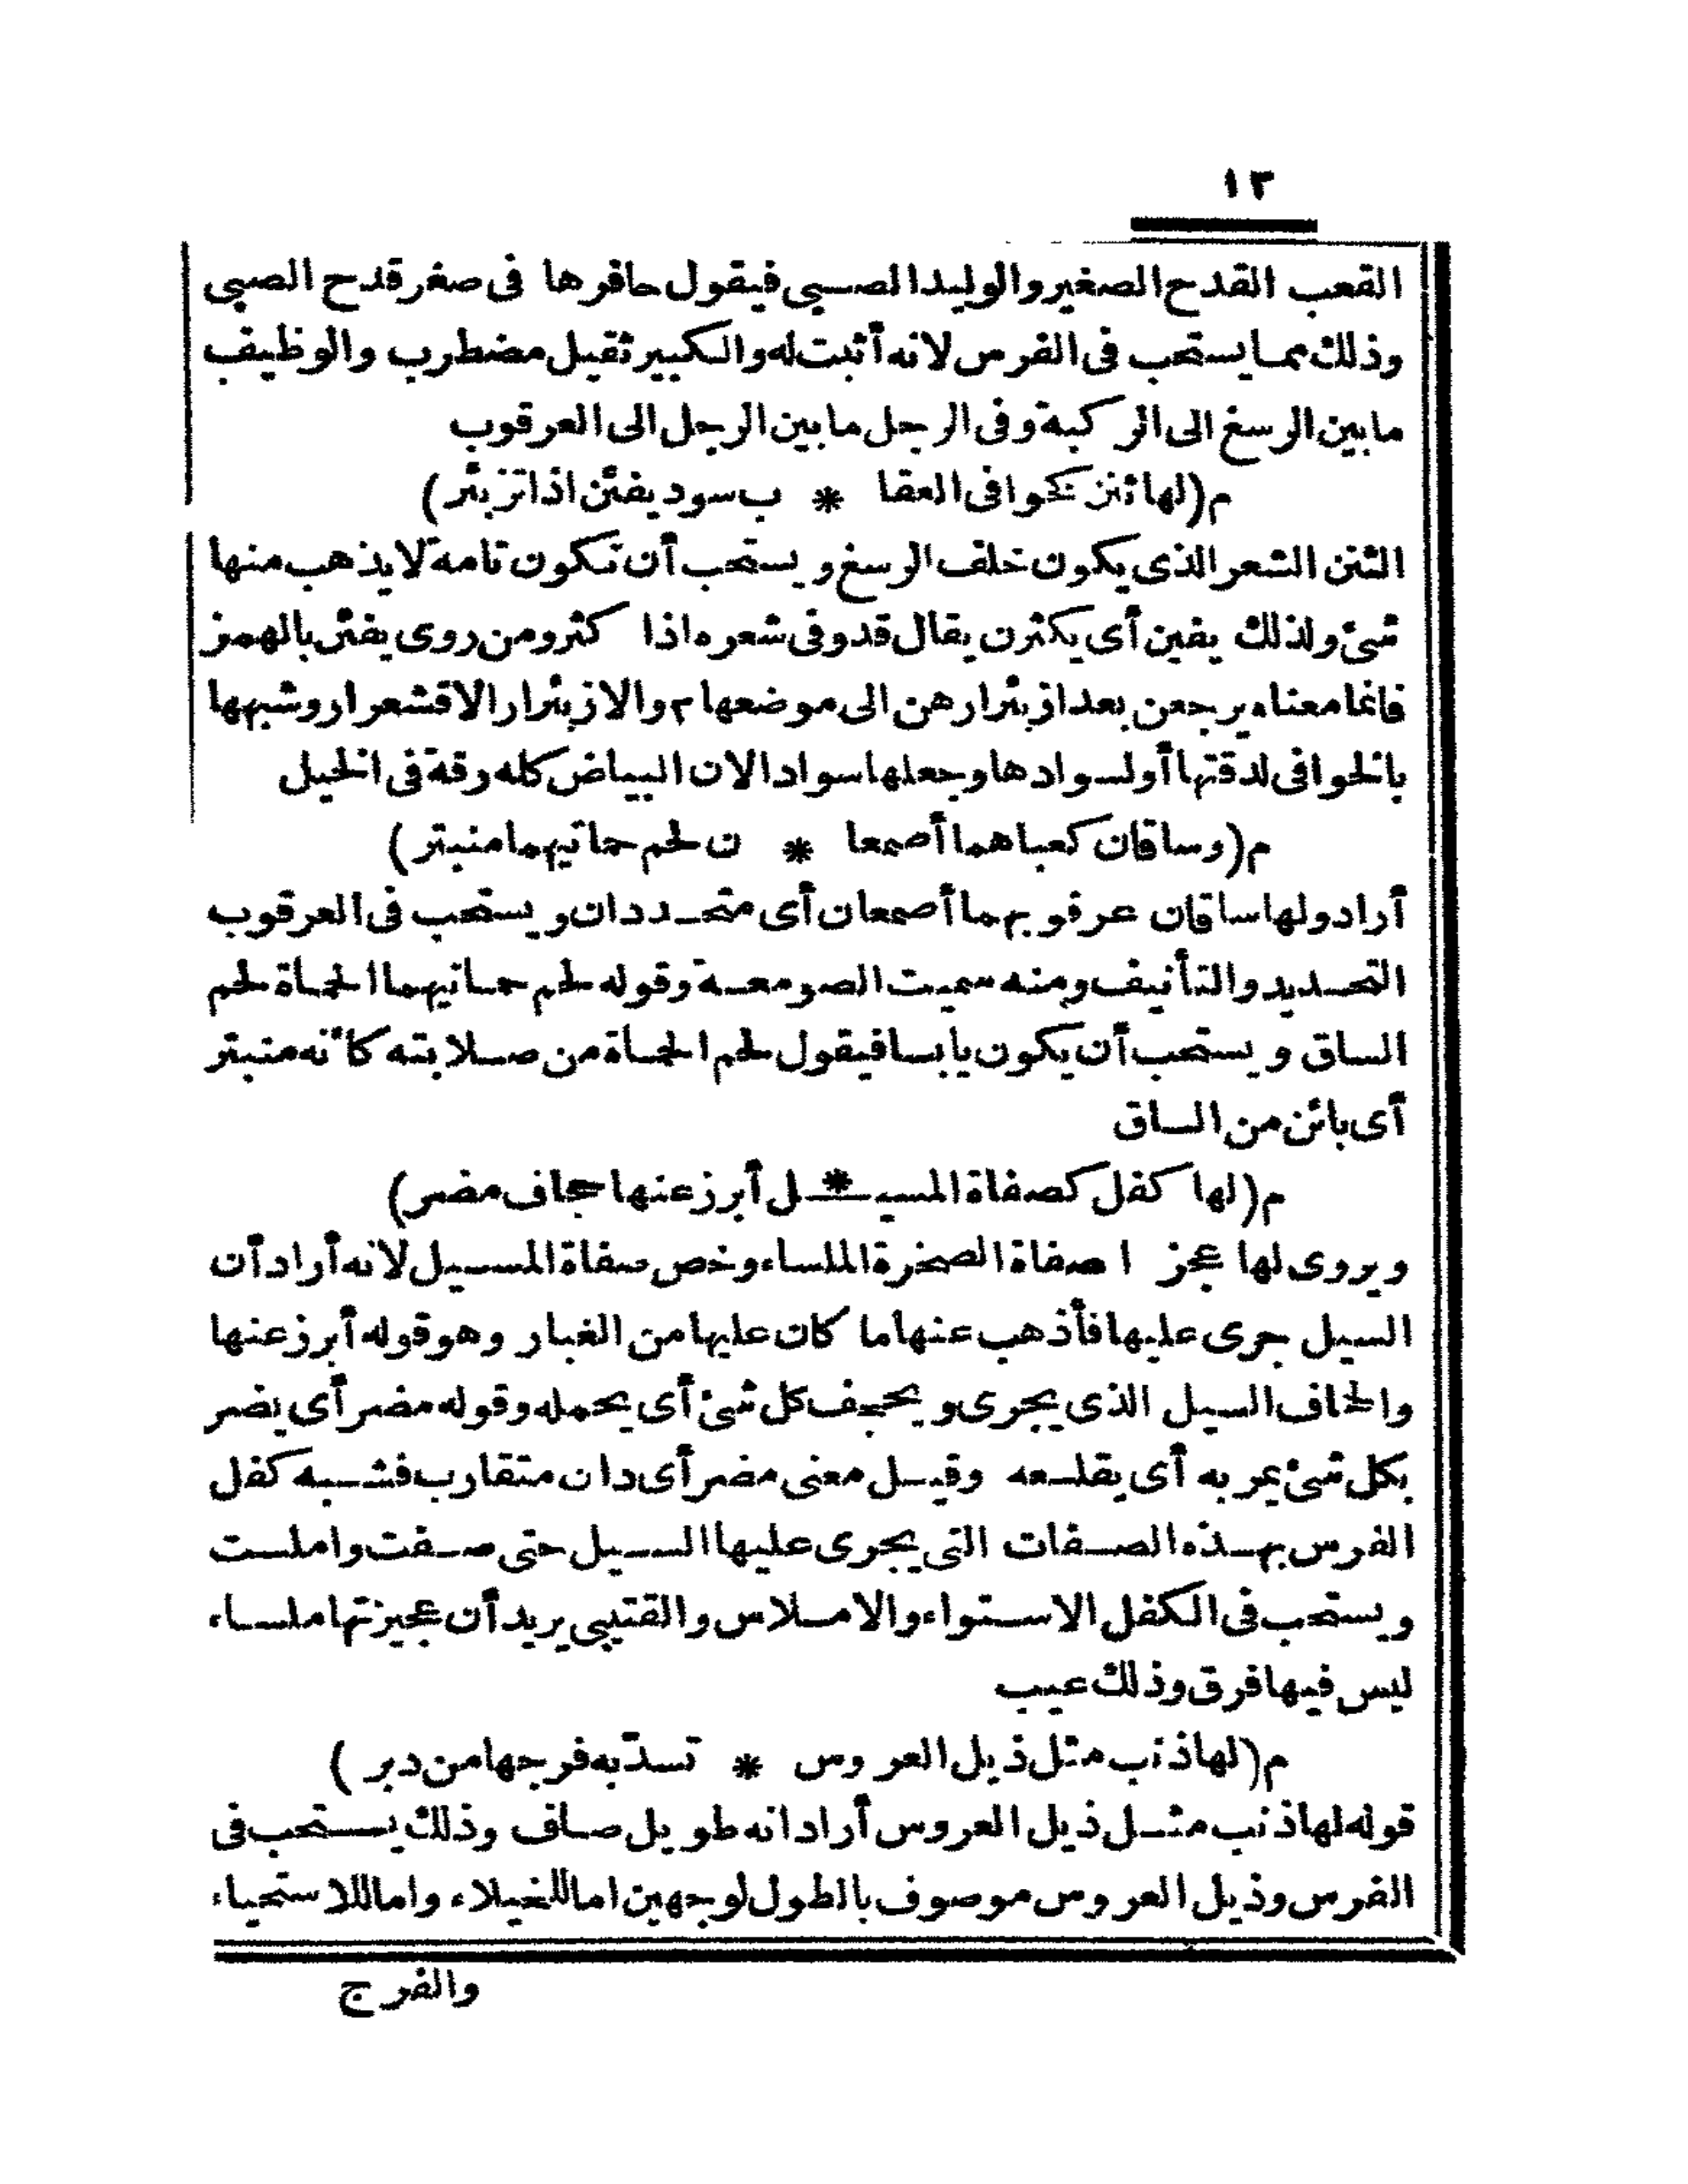 ١٣
القعب القدح الصغير والوليد الصبي فيقول حافرها فى صغر قدح الصبى
وذلك مما يستحب فى الفرس لانه أثبت له والكبير ثقيل مضطرب والوظيف
ما بين الرسغ الى الركبة وفى الرجل ما بين الرجل الى العرقوب
م (لها ثنن كخوافى العقا * ب سود يفئن اذا تزبئر)
الثنن الشعر الذى يكون خلف الرسغ ويستحب أن تكون تامة لا يذهب منها
شئ ولذلك يفين أى يكثرن يقال قد وفى شعره اذا كثر ومن روى يفئن بالهمز
فانما معناه يرجعن بعد ازبئرارهن الى موضعها م والازبئرار الاقشعرار وشبهها
بالخوافى لدقتها أو لسوادها وجعلها سوادا لان البياض كله رقة فى الخيل
م (وساقان كعباهما أصمعا * ن لحم حماتيهما منبتر)
أراد ولها ساقان عرقوبهما أصمعان أى متحددان ويستحب فى العرقوب
التحديد والتأنيف ومنه سميت الصومعة وقوله لحم حماتيهما الحماة لحم
الساق ويستحب أن يكون يابسا فيقول لحم الحماة من صلابته كأنه منبتر
أى بائن من الساق
م (لها كفل كصفاة المسيـ * ـل أبرز عنها جحاف مضر)
ويروى لها عجز ا صفاة الصخرة الملساء وخص صفاة المسيل لانه أراد أن
السيل جرى عليها فأذهب عنها ما كان عليها من الغبار وهو قوله أبرز عنها
والجحاف السيل الذى يجرى ويجحف كل شئ أى يحمله وقوله مضر أى يضر
بكل شئ يمر به أى يقلعه وقيل معنى مضر أى دان متقارب فشبه كفل
الفرس بهذه الصفات التى يجرى عليها السيل حتى صفت واملست
ويستحب فى الكفل الاستواء والاملاس والقتيبى يريد أن عجيزتها ملساء
ليس فيها فرق وذلك عيب
م (لها ذنب مثل ذيل العروس * تسدّ به فرجها من دبر)
قوله لها ذنب مثل ذيل العروس أراد انه طويل صاف وذلك يستحب فى
الفرس وذيل العروس موصوف بالطول لوجهين اما للخيلاء واما للاستحياء
والفرج